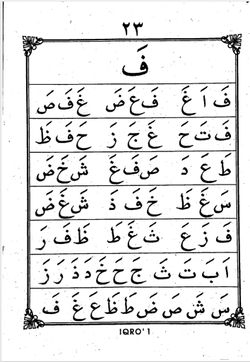 ٢٣
فَ
فَ اَ غَ فَ عَ ضَ غَ فَ صَ
فَ تَ حَ غَ جَ زَ حَ فَ ظَ
طَ عَ دَ صَ فَ غَ شَ خَ ضَ
سَ غَ ظَ خَ فَ ذَ شَ غَ ضَ
فَ زَ عَ ثَ غَ طَ ظَ فَ رَ
اَ بَ تَ ثَ جَ حَ خَ دَ ذَ رَ زَ
سَ شَ صَ ضَ طَ ظَ عَ غَ فَ
IQRO' 1